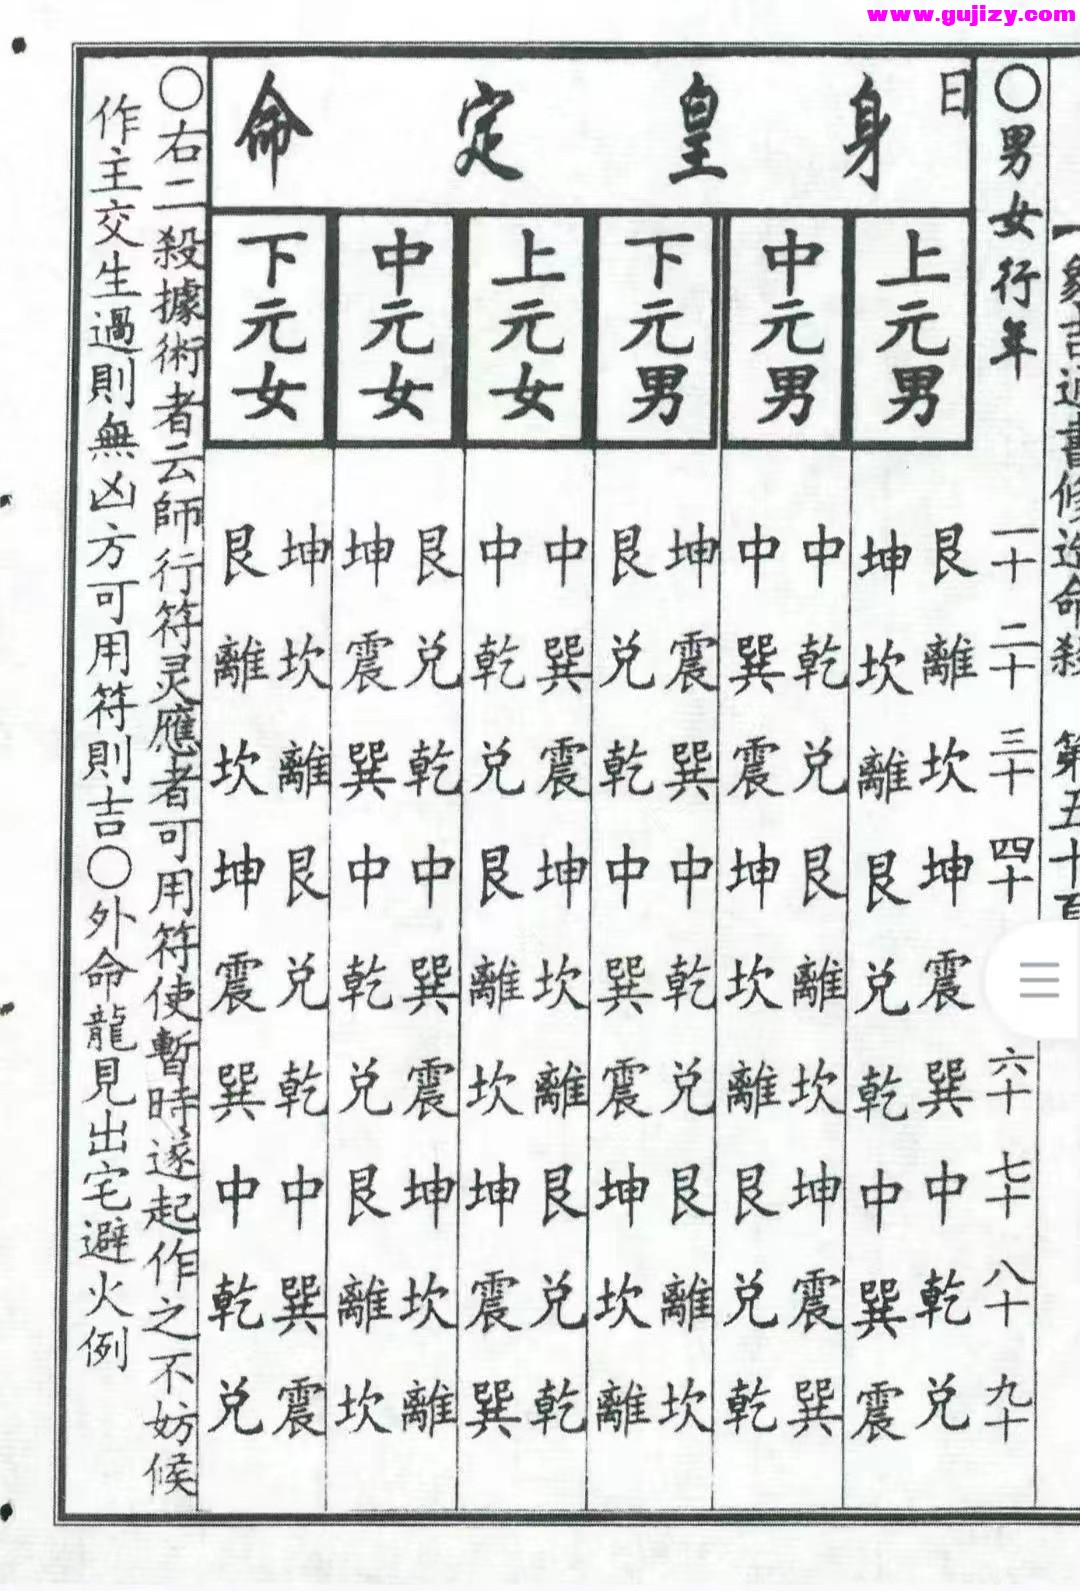 www.gujizy.com
象吉通書修造命殺 第五十頁
〇男女行年 一十 二十 三十 四十 六十 七十 八十 九十
日
身皇定命
上元男
艮 離 坎 坤 震 巽 中 乾 兌
坤 坎 離 艮 兌 乾 中 巽 震
中元男
中 乾 兌 艮 離 坎 坤 震 巽
中 巽 震 坤 坎 離 艮 兌 乾
下元男
坤 震 巽 中 乾 兌 艮 離 坎
艮 兌 乾 中 巽 震 坤 坎 離
上元女
中 巽 震 坤 坎 離 艮 兌 乾
中 乾 兌 艮 離 坎 坤 震 巽
中元女
艮 兌 乾 中 巽 震 坤 坎 離
坤 震 巽 中 乾 兌 艮 離 坎
下元女
坤 坎 離 艮 兌 乾 中 巽 震
艮 離 坎 坤 震 巽 中 乾 兌
〇右二殺據術者云師行符灵應者可用符使暫時遂起作之不妨候
作主交生過則無凶方可用符則吉〇外命龍見出宅避火例